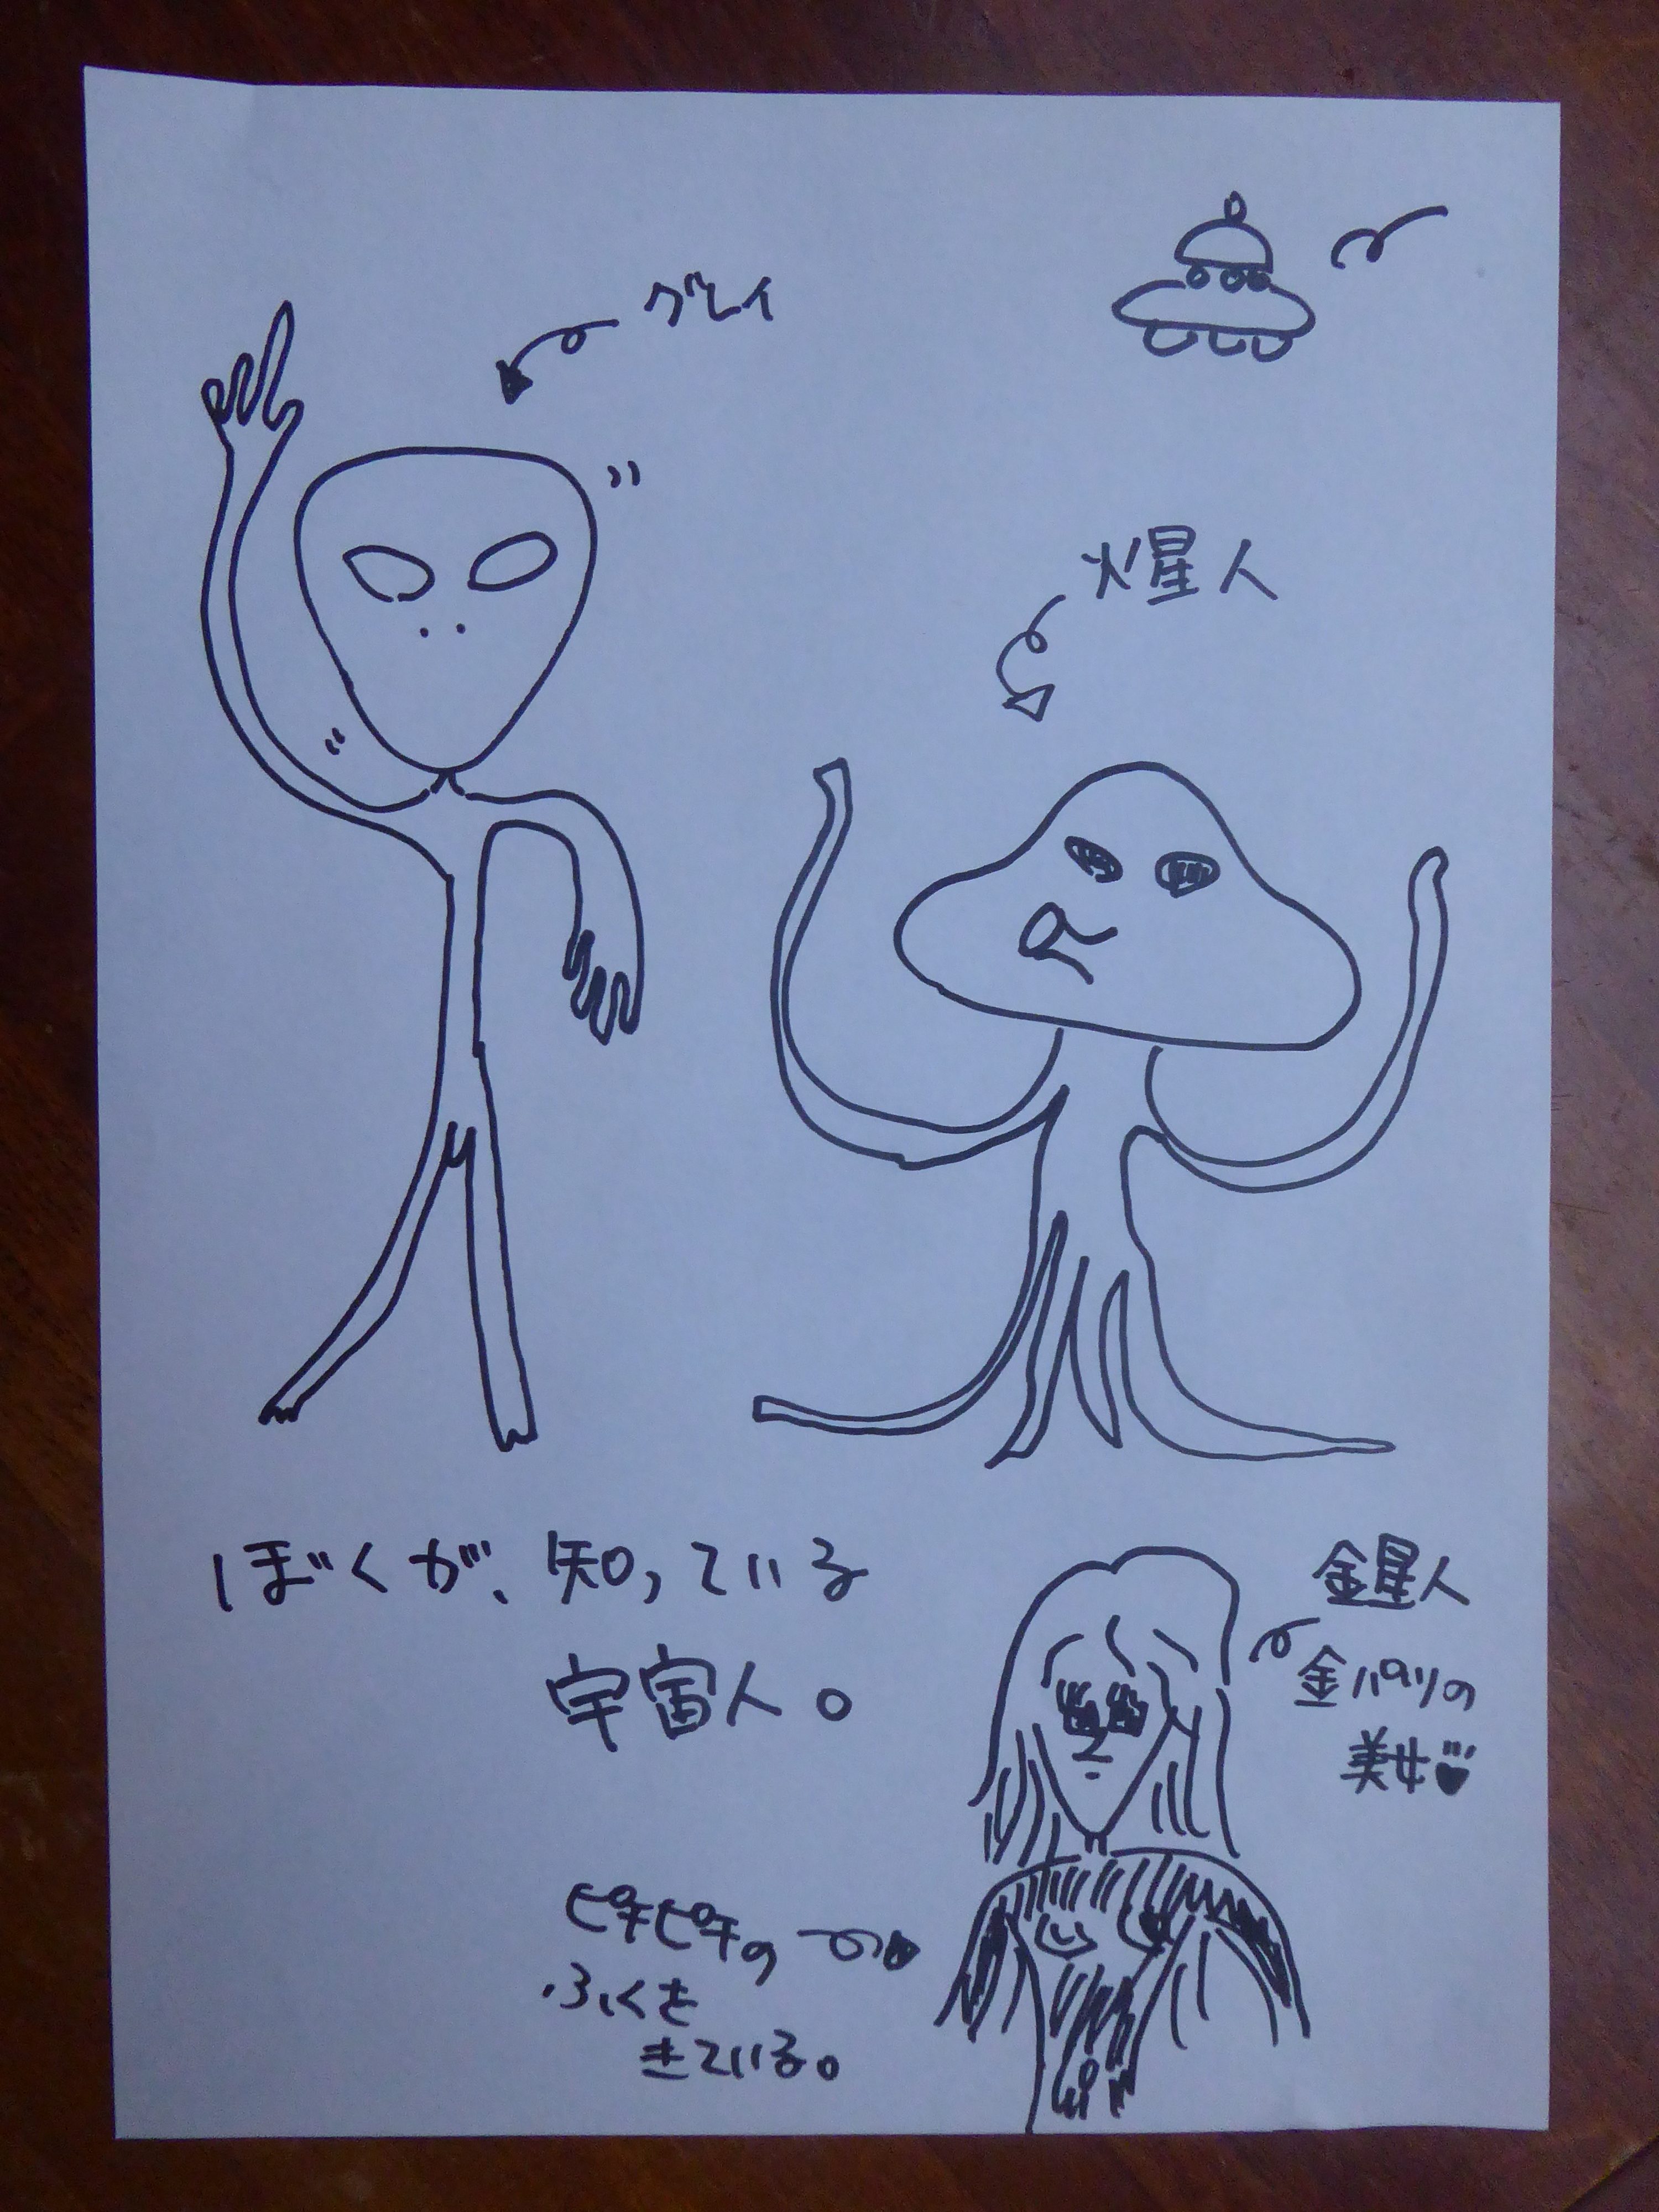 グレイ
火星人
ぼくが、知っている
宇宙人。
金星人
金パツの
美女
ピチピチの
ふくを
きている。